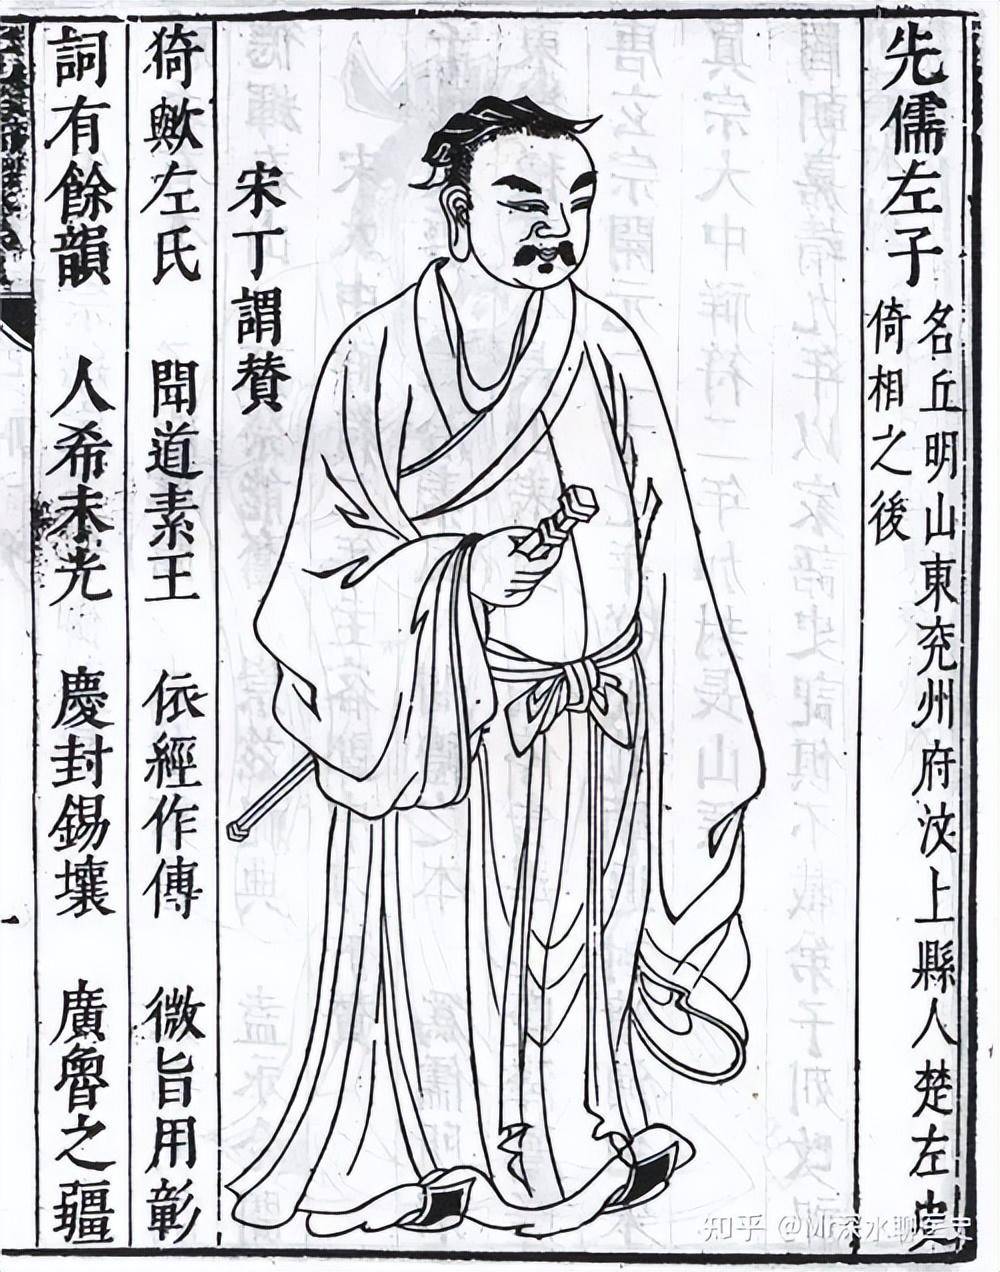 先儒左子
名丘明山東兖州府汶上縣人楚左史
倚相之後
宋丁謂賛
猗歟左氏　聞道素王　依經作傳　微旨用彰
詞有餘韻　人希末光　慶封錫壤　廣魯之疆
知乎 @Mr深水聊医史